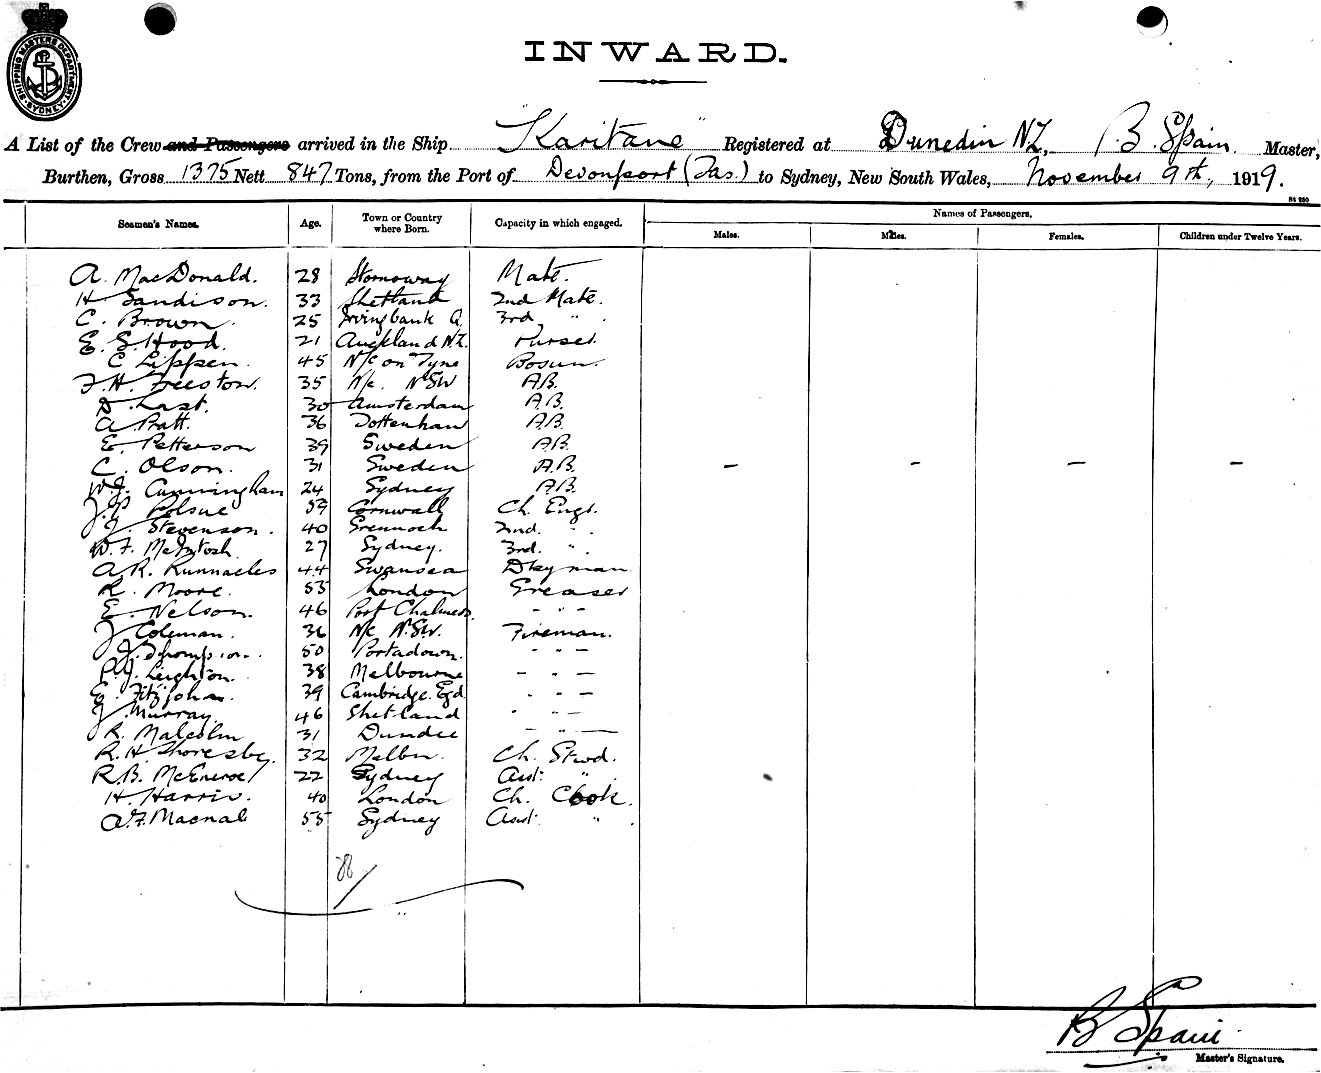 SHIPPING MASTERS DEPARTMENT SYDNEY
INWARD.
A List of the Crew and Passengers arrived in the Ship "Karitane" Registered at Dunedin NZ, B. Spain. Master,
Burthen, Gross 1375 Nett 847 Tons, from the Port of Devonport (Tas.) to Sydney, New South Wales, November 9th, 1919.
Seamen's Names. Age. Town or Country where Born. Capacity in which engaged. Names of Passengers.
Males. Males. Females. Children under Twelve Years.
A. MacDonald. 28 Stornoway Mate.
H Sandison. 33 Shetland 2nd Mate.
C. Brown. 25 Irvingbank Q. 3rd " .
E. S. Hood. 21 Auckland N.Z. Purser
C Lippen. 45 N/c on Tyne Bosun.
F. H. Freeston. 35 N/c. NSW A.B.
D. Last. 30 Amsterdam A.B.
A. Batt. 36 Tottenham A.B.
E. Petterson 39 Sweden A.B.
C. Olson. 31 Sweden A.B. - - - -
W.J. Cunningham 24 Sydney A.B.
J.P. Polsue 59 Cornwall Ch. Engr.
J. Stevenson. 40 Greenock 2nd. " .
W. F. McIntosh. 27 Sydney. 3rd. " .
A R. Runnacles 44 Swansea Dkyman
R. Moore. 53 London Greaser
E. Nelson. 46 Port Chalmers. - " -
J Coleman. 36 N/c N.S.W. Fireman.
J. Thompson. 50 Portadown. - " -
P.J. Leighton. 38 Melbourne - " -
E. Fitzjohn. 39 Cambridge. Egd. - " -
J. Murray. 46 Shetland - " -
R. Malcolm 31 Dundee - " -
R. H. Thoresby. 32 Melbn. Ch. Stwd.
R.B. McEneroe 22 Sydney Asst. " .
H. Harris. 40 London Ch. Cook.
A.F. Macnab 55 Sydney Asst. " .
B Spain
Master's Signature.